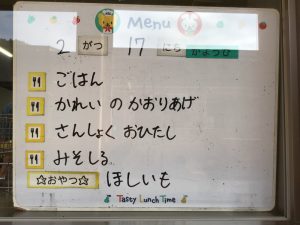 Menu
2 がつ 17 にち かようび
ごはん
かれい の かおりあげ
さんしょく おひたし
みそしる
☆おやつ☆ ほしいも
Tasty Lunch Time